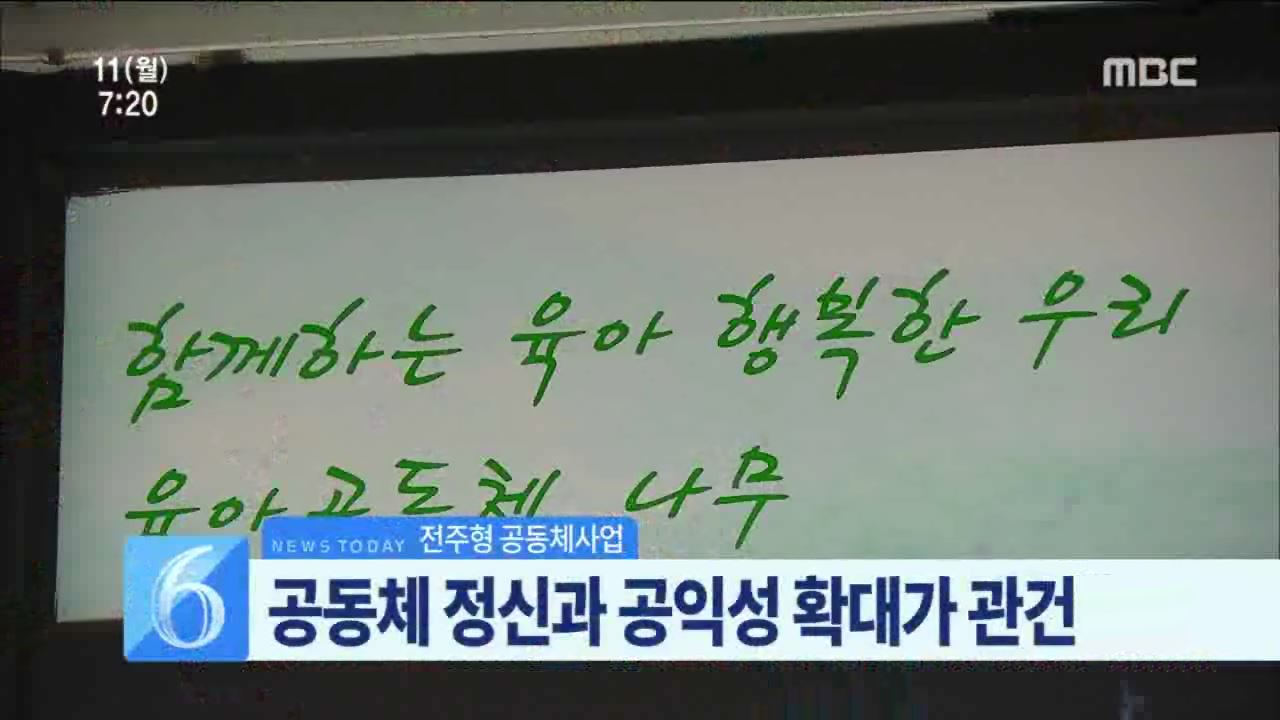 11(월)
7:20
MBC
함께하는 육아 행복한 우리
육아공동체 나무
NEWS TODAY 전주형 공동체사업
6
공동체 정신과 공익성 확대가 관건